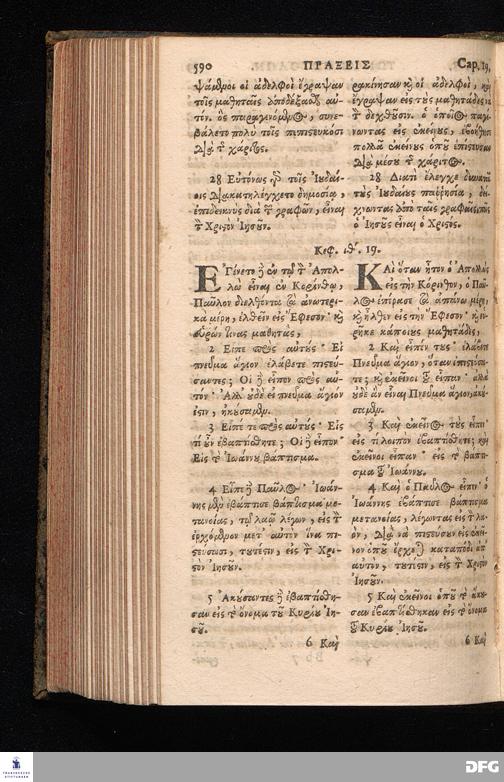 590 ΠΡΑΞΕΙΣ Cap. 19.
ψάμενοι οἱ ἀδελφοὶ ἔγραψαν
τοῖς μαθηταῖς ἀποδέξασθαι αὐ-
τόν. ὃς παραγενόμενος, συνε-
βάλετο πολὺ τοῖς πεπιστευκόσι
διὰ τῆς χάριτος.
28 Εὐτόνως γὰρ τοῖς Ἰουδαί-
οις διακατηλέγχετο δημοσίᾳ,
ἐπιδεικνὺς διὰ τῶν γραφῶν, εἶναι
τὸν Χριστὸν Ἰησοῦν.
ρακίνησαν καὶ οἱ ἀδελφοὶ, καὶ
ἔγραψαν εἰς τοὺς μαθητάδες νὰ
τὸν δεχθοῦσιν. ὁ ὁποῖος
νωντας εἰς ἐκείνους,
πολλὰ ἐκείνους ὁποῦ ἐπίστευσαν
διὰ μέσου τῆς χάριτος.
28 Διατὶ ἔλεγχε δυνατὰ
τοὺς Ἰουδαίους παρρησίᾳ,
χνωντας ἀπὸ ταῖς γραφαῖς πῶς
ὁ Ἰησοῦς εἶναι ὁ Χριστός.
Κεφ. ιθʹ. 19.
ΕΓένετο δὲ ἐν τῷ τὸν Ἀπολ-
λὼ εἶναι ἐν Κορίνθῳ,
Παῦλον διελθόντα τὰ ἀνωτερι-
κὰ μέρη, ἐλθεῖν εἰς Ἔφεσον· καὶ
εὑρών τινας μαθητὰς,
2 Εἶπε πρὸς αὐτούς· Εἰ
πνεῦμα ἅγιον ἐλάβετε πιστεύ-
σαντες; Οἱ δὲ εἶπον πρὸς αὐ-
τόν· Ἀλλ' οὐδὲ εἰ πνεῦμα ἅγιόν
ἐστιν, ἠκούσαμεν.
3 Εἶπέ τε πρὸς αὐτούς· Εἰς
τί οὖν ἐβαπτίσθητε; Οἱ δὲ εἶπον·
Εἰς τὸ Ἰωάννου βάπτισμα.
4 Εἶπε δὲ Παῦλος· Ἰωάν-
νης μὲν ἐβάπτισε βάπτισμα με-
τανοίας, τῷ λαῷ λέγων, εἰς τὸν
ἐρχόμενον μετ' αὐτὸν ἵνα πι-
στεύσωσι, τουτέστιν, εἰς τὸν Χρι-
στὸν Ἰησοῦν.
5 Ἀκούσαντες δὲ ἐβαπτίσθη-
σαν εἰς τὸ ὄνομα τοῦ Κυρίου Ἰη-
σοῦ.
6 Καὶ
ΚΑὶ ὅταν ἦτον ὁ Ἀπολλὼς
εἰς τὴν Κόρινθον, ὁ Παῦ-
λος ἐπέρασε τὰ ἀπάνω μέρη,
καὶ ἦλθεν εἰς τὴν Ἔφεσον· καὶ εὑ-
ρῆκε κάποιους μαθητάδες,
2 Καὶ εἶπέν τους· ἐλάβετε
Πνεῦμα ἅγιον, ὅταν ἐπιστεύσε-
τε; καὶ ἐκεῖνοι τοῦ εἶπαν· ἀλλὰ
οὐδὲ ἂν εἶναι Πνεῦμα ἅγιον, ἠκού-
σαμεν.
3 Καὶ ἐκεῖνος τοὺς εἶπε·
εἰς τί λοιπὸν ἐβαπτίσθητε; καὶ
ἐκεῖνοι εἶπαν· εἰς τὸ βάπτι-
σμα τοῦ Ἰωάννου.
4 Καὶ ὁ Παῦλος εἶπεν· ὁ
Ἰωάννης ἐβάπτισε βάπτισμα
μετανοίας, λέγωντας εἰς τὸν λα-
ὸν, διὰ νὰ πιστεύουν εἰς ἐκεῖ-
νον ὁποῦ ἔρχεται καταπόδι ἀπ'
αὐτὸν, τουτέστιν, εἰς τὸν Χριστὸν
Ἰησοῦν.
5 Καὶ ἐκεῖνοι ὁποῦ τὸ ἤκου-
σαν ἐβαπτίσθηκαν εἰς τὸ ὄνομα
τοῦ Κυρίου Ἰησοῦ.
6 Καὶ
FRANCKESCHE
STIFTUNGEN
DFG